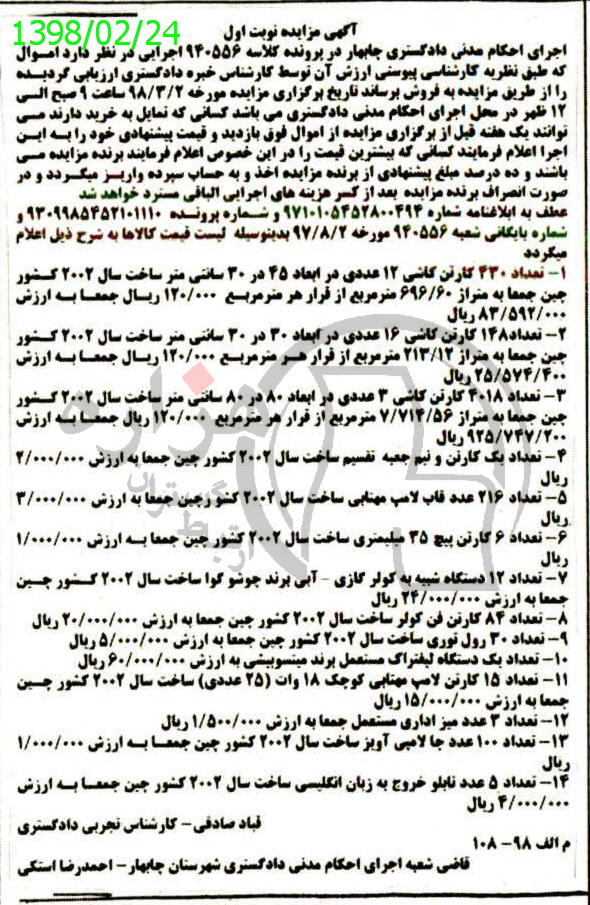 1398/02/24
آگهی مزایده نوبت اول
اجرای احکام مدنی دادگستری چابهار در پرونده کلاسه ۹۴۰۵۵۶ اجرایی در نظر دارد اموال
که طبق نظریه کارشناسی پیوستی ارزش آن توسط کارشناس خبره دادگستری ارزیابی گردیده
را از طریق مزایده به فروش برساند تاریخ برگزاری مزایده مورخه ۹۸/۳/۲ ساعت ۹ صبح الی
۱۲ ظهر در محل اجرای احکام مدنی دادگستری می باشد کسانی که تمایل به خرید دارند می
توانند یک هفته قبل از برگزاری مزایده از اموال فوق بازدید و قیمت پیشنهادی خود را به این
اجرا اعلام فرمایند کسانی که بیشترین قیمت را در این خصوص اعلام فرمایند برنده مزایده می
باشند و ده درصد مبلغ پیشنهادی از برنده مزایده اخذ و به حساب سپرده واریز میگردد و در
صورت انصراف برنده مزایده بعد از کسر هزینه های اجرایی الباقی مسترد خواهد شد
عطف به ابلاغنامه شماره ۹۷۱۰۱۰۵۴۵۲۸۰۰۴۹۴ و شماره پرونده ۹۳۰۹۹۸۵۴۵۲۱۰۱۱۱۰ و
شماره بایگانی شعبه ۹۴۰۵۵۶ مورخه ۹۷/۸/۲ بدینوسیله لیست قیمت کالاها به شرح ذیل اعلام
میگردد
۱- تعداد ۴۳۰ کارتن کاشی ۱۲ عددی در ابعاد ۴۵ در ۳۰ سانتی متر ساخت سال ۲۰۰۲ کشور
چین جمعا به متراژ ۶۹۶/۶۰ مترمربع از قرار هر مترمربع ۱۲۰/۰۰۰ ریال جمعا به ارزش
۸۳/۵۹۲/۰۰۰ ریال
۲- تعداد۱۴۸ کارتن کاشی ۱۶ عددی در ابعاد ۳۰ در ۳۰ سانتی متر ساخت سال ۲۰۰۲ کشور
چین جمعا به متراژ ۲۱۳/۱۲ مترمربع از قرار هر مترمربع ۱۲۰/۰۰۰ ریال جمعا به ارزش
۲۵/۵۷۴/۴۰۰ ریال
۳- تعداد ۴۰۱۸ کارتن کاشی ۳ عددی در ابعاد ۸۰ در ۸۰ سانتی متر ساخت سال ۲۰۰۲ کشور
چین جمعا به متراژ ۷/۷۱۴/۵۶ مترمربع از قرار هر مترمربع ۱۲۰/۰۰۰ ریال جمعا به ارزش
۹۲۵/۷۴۷/۲۰۰ ریال
۴- تعداد یک کارتن و نیم جعبه تقسیم ساخت سال ۲۰۰۲ کشور چین جمعا به ارزش ۲/۰۰۰/۰۰۰
ریال
۵- تعداد ۲۱۶ عدد قاب لامپ مهتابی ساخت سال ۲۰۰۲ کشو رچین جمعا به ارزش ۳/۰۰۰/۰۰۰
ریال
۶- تعداد ۶ کارتن پیچ ۳۵ میلیمتری ساخت سال ۲۰۰۲ کشور چین جمعا به ارزش ۱/۰۰۰/۰۰۰
ریال
۷- تعداد ۱۲ دستگاه شبیه به کولر گازی - آبی برند چوشو کوا ساخت سال ۲۰۰۲ کشور چین
جمعا به ارزش ۲۴/۰۰۰/۰۰۰ ریال
۸- تعداد ۸۴ کارتن فن کولر ساخت سال ۲۰۰۲ کشور چین جمعا به ارزش ۲۰/۰۰۰/۰۰۰ ریال
۹- تعداد ۳۰ رول توری ساخت سال ۲۰۰۲ کشور چین جمعا به ارزش ۵/۰۰۰/۰۰۰ ریال
۱۰- تعداد یک دستگاه لیفتراک مستعمل برند میتسوبیشی به ارزش ۶۰/۰۰۰/۰۰۰ ریال
۱۱- تعداد ۱۵ کارتن لامپ مهتابی کوچک ۱۸ وات (۲۵ عددی) ساخت سال ۲۰۰۲ کشور چین
جمعا به ارزش ۱۵/۰۰۰/۰۰۰ ریال
۱۲- تعداد ۳ عدد میز اداری مستعمل جمعا به ارزش ۱/۵۰۰/۰۰۰ ریال
۱۳- تعداد ۱۰۰ عدد جا لامپی آویز ساخت سال ۲۰۰۲ کشور چین جمعا به ارزش ۱/۰۰۰/۰۰۰
ریال
۱۴- تعداد ۵ عدد تابلو خروج به زبان انگلیسی ساخت سال ۲۰۰۲ کشور چین جمعا به ارزش
۴/۰۰۰/۰۰۰ ریال
قباد صادقی - کارشناس تجربی دادگستری
م الف ۹۸- ۱۰۸
قاضی شعبه اجرای احکام مدنی دادگستری شهرستان چابهار - احمدرضا استکی